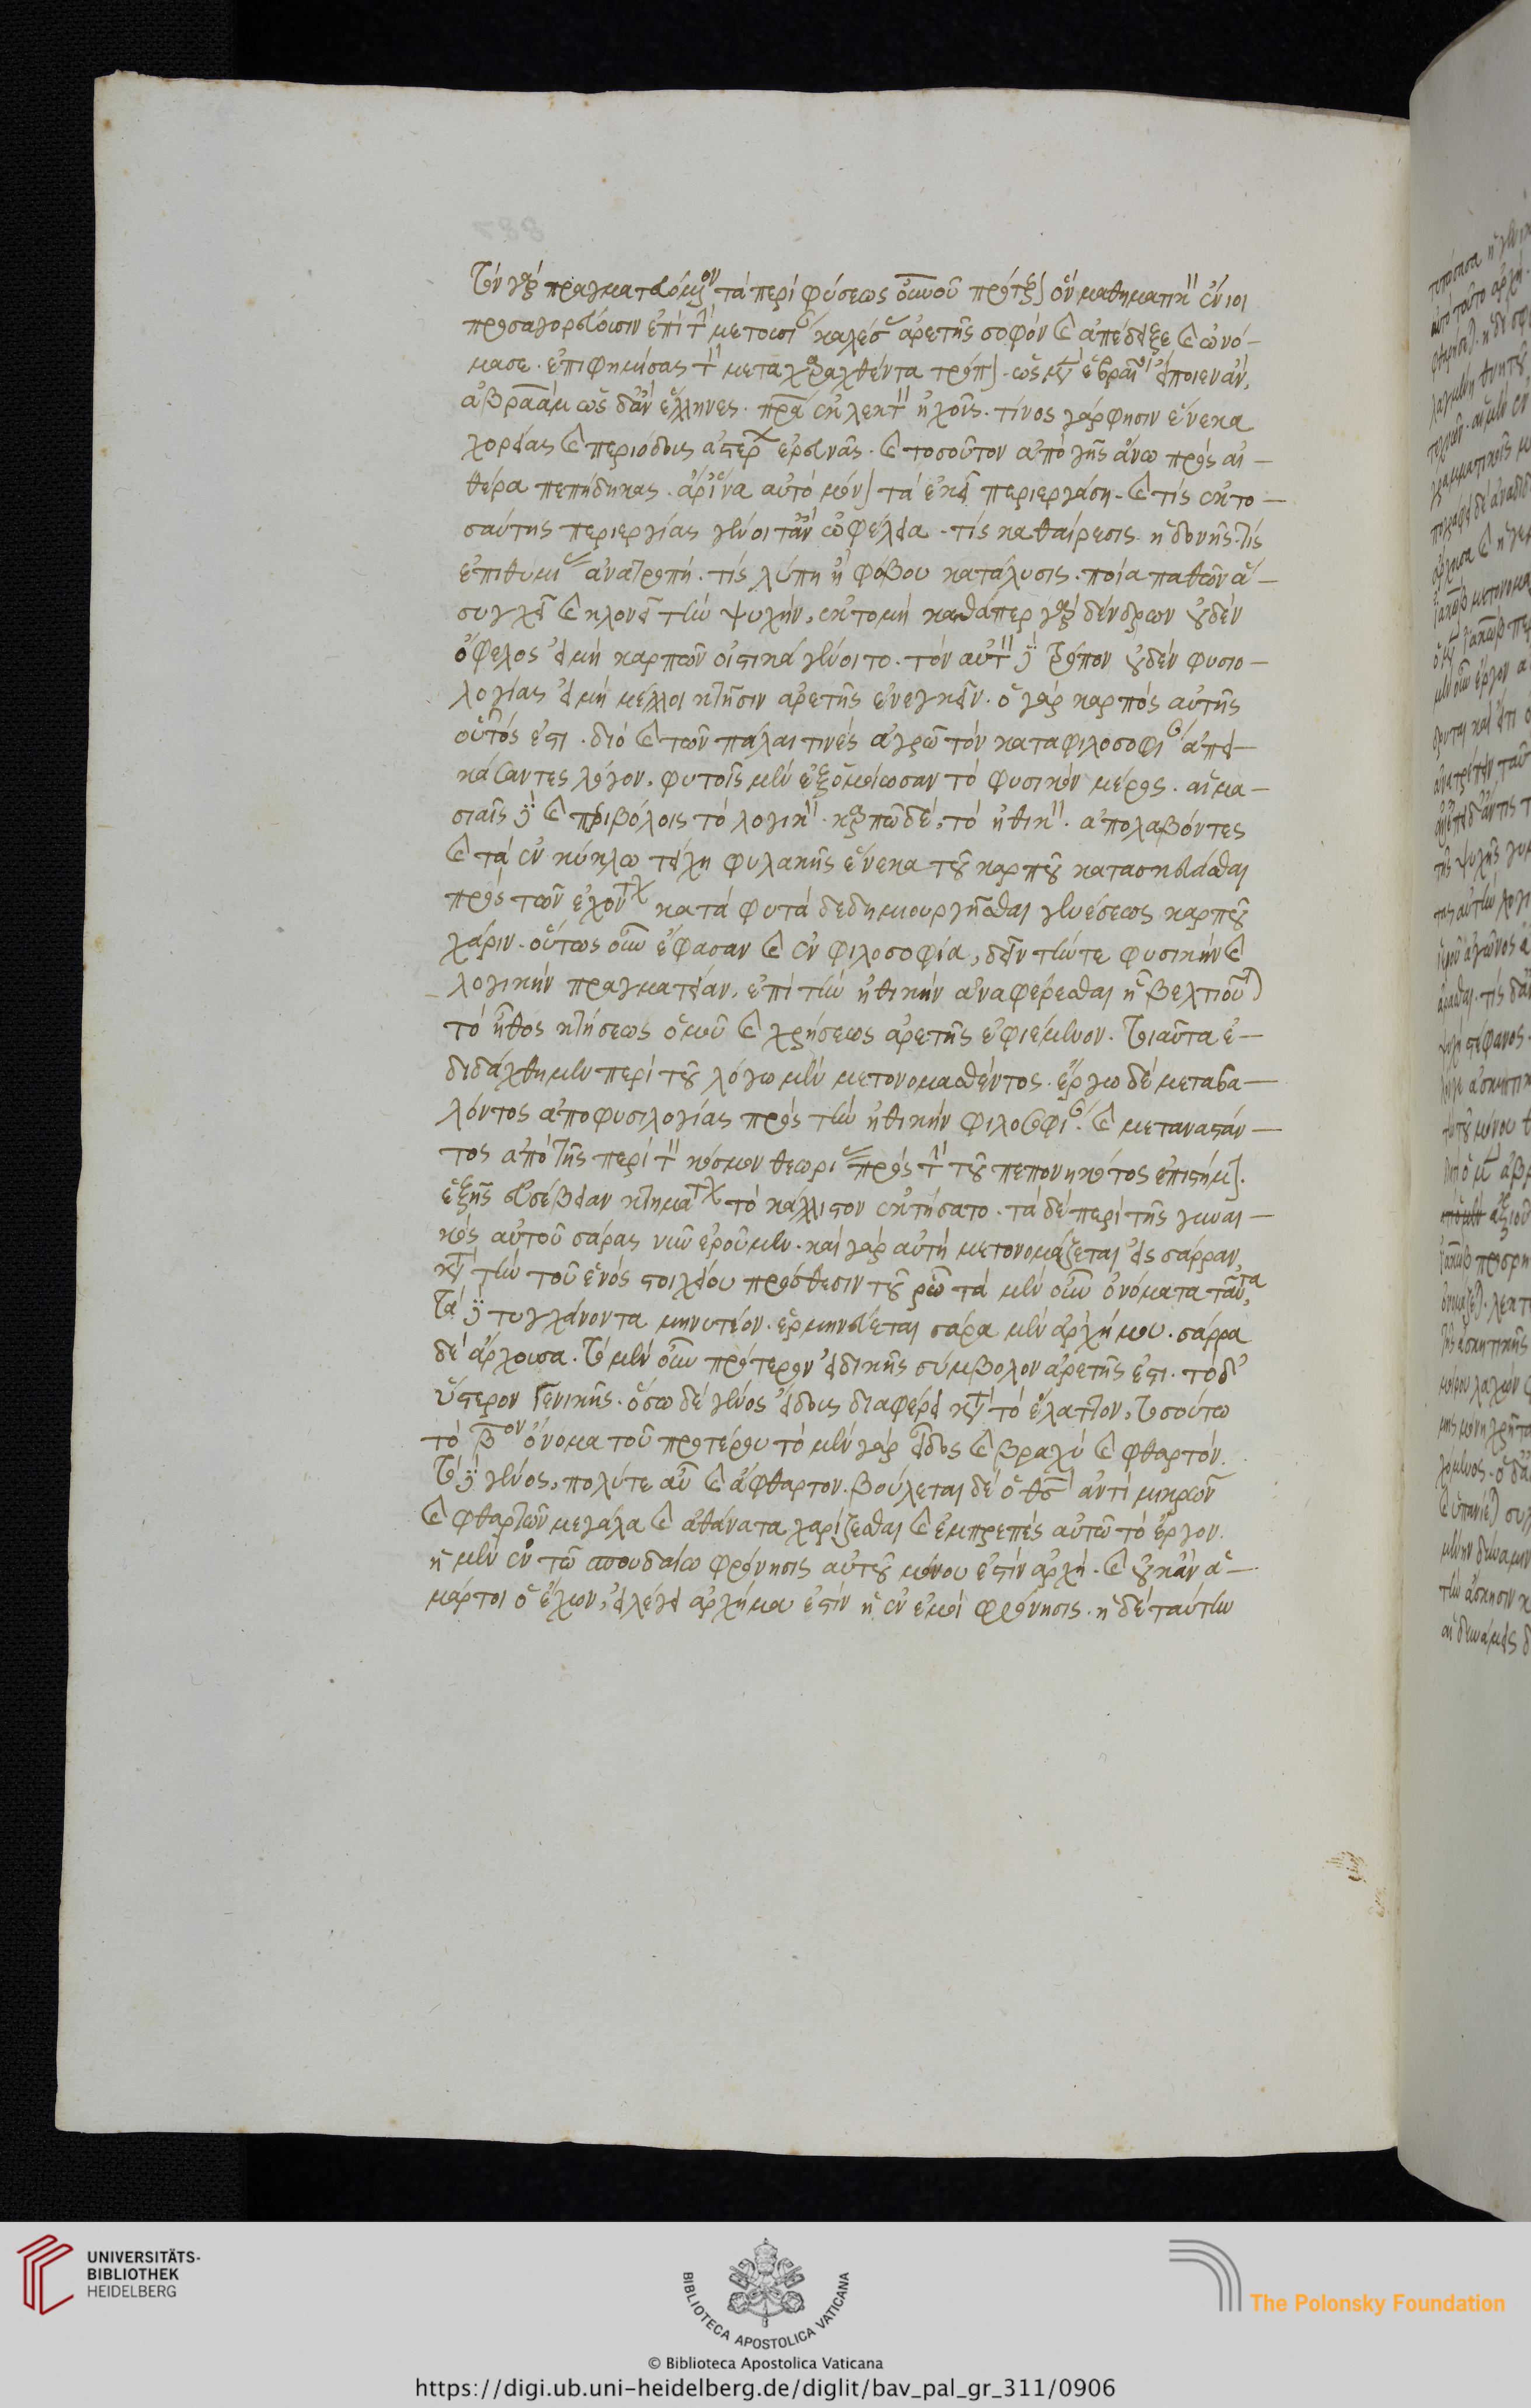 τὸν γὰρ πραγματευόμενον τὰ περὶ φύσεως οὐρανοῦ πρότερον ὃν μαθηματικὸν ἔνιοι
προσαγορεύουσιν ἐπὶ τὴν μετουσίαν καλέσας ἀρετῆς σοφὸν καὶ ἀπέδειξε καὶ ὠνό-
μασε. ἐπιφημίσας τὸν μεταχαραχθέντα τρόπον. ὡς μὲν ἑβραῖοι εἴποιεν ἂν,
ἀβραάμ ὡς δ' ἂν ἕλληνες. πατέρα ἐκλεκτὸν ἠχοῦς. τίνος γάρ φησιν ἕνεκα
χορείας καὶ περιόδους ἀστέρων ἐρευνᾶς. καὶ τοσοῦτον ἀπὸ γῆς ἄνω πρὸς αἰ-
θέρα πεπήδηκας. ἆρ' ἵνα αὐτὸ μόνον τὰ ἐκεῖ περιεργάσῃ. καὶ τίς ἐκ το-
σαύτης περιεργίας γένοιτ' ἂν ὠφέλεια. τίς καθαίρεσις ἡδονῆς. τίς
ἐπιθυμίας ἀνατροπή. τίς λύπη ἢ φόβου κατάλυσις. ποία παθῶν ἃ
συγχεῖ καὶ κλονεῖ τὴν ψυχήν, ἐκτομή καθάπερ γὰρ δένδρων οὐδὲν
ὄφελος εἰ μὴ καρπῶν οἰστικὰ γένοιτο. τὸν αὐτὸν δὲ τρόπον οὐδὲν φυσιο-
λογίας εἰ μὴ μέλλοι κτῆσιν ἀρετῆς ἐνεγκεῖν. ὁ γὰρ καρπὸς αὐτῆς
οὗτός ἐστι. διὸ καὶ τῶν πάλαι τινὲς ἀγρῷ τὸν κατὰ φιλοσοφίαν ἀπει-
κάσαντες λόγον. φυτοῖς μὲν ἐξομοίωσαν τὸ φυσικὸν μέρος. αἱμα-
σιαῖς δὲ καὶ περιβόλοις τὸ λογικὸν. καρπῷ δὲ, τὸ ἠθικὸν. ἀπολαβόντες
καὶ τὰ ἐν κύκλω τείχη φυλακῆς ἕνεκα τοῦ καρποῦ κατασκευάσθαι
πρὸς τῶν ἐχόντων κατὰ φυτὰ δεδημιουργῆσθαι γενέσεως καρποῦ
χάριν. οὕτως οὖν ἔφασαν καὶ ἐν φιλοσοφία, δεῖν τήν τε φυσικὴν καὶ
λογικὴν πραγματείαν, ἐπὶ τὴν ἠθικὴν ἀναφέρεσθαι ᾗ βελτιοῦται
τὸ ἦθος κτήσεως ὁμοῦ καὶ χρήσεως ἀρετῆς ἐφιέμενον. τοιαῦτα ἐ-
διδάχθημεν περὶ τοῦ λόγω μὲν μετονομασθέντος. ἔργω δὲ μεταβα-
λόντος ἀπὸ φυσιλογίας πρὸς τὴν ἠθικὴν φιλοσοφίαν. καὶ μεταναστάν-
τος ἀπὸ τῆς περὶ τὸν κόσμον θεωρίας πρὸς τὴν τοῦ πεπονηκότος ἐπιστήμην.
ἐξ ἧς εὐσέβειαν κτημάτων τὸ κάλλιστον ἐκτήσατο. τὰ δὲ περὶ τῆς γυναι-
κὸς αὐτοῦ σάρας νῦν ἐροῦμεν. καὶ γὰρ αὐτὴ μετονομάζεται εἰς σάρραν,
κατὰ τὴν τοῦ ἑνὸς στοιχείου πρόσθεσιν τοῦ ρῶ τὰ μὲν οὖν ὀνόματα ταῦτα,
τὰ δὲ τυγχάνοντα μηνυτέον. ἑρμηνεύεται σάρα μὲν ἀρχή μου. σάρρα
δὲ ἄρχουσα. τὸ μὲν οὖν πρότερον εἰδικῆς σύμβολον ἀρετῆς ἐστι. τὸ δ'
ὕστερον γενικῆς. ὅσω δὲ γένος εἴδους διαφέρει κατὰ τὸ ἔλαττον, τοσούτω
τὸ βον ὄνομα τοῦ προτέρου τὸ μὲν γὰρ εἶδος καὶ βραχὺ καὶ φθαρτόν.
τὸ δὲ γένος, πολύ τε αὖ καὶ ἄφθαρτον. βούλεται δὲ ὁ θς ἀντὶ μικρῶν
καὶ φθαρτῶν μεγάλα καὶ ἀθάνατα χαρίζεσθαι καὶ ἐμπρεπὲς αὐτῶ τὸ ἔργον.
ἡ μὲν ἐν τῶ σπουδαίω φρόνησις αὐτοῦ μόνου ἐστὶν ἀρχή. καὶ οὐκ ἂν ἁ-
μάρτοι ὁ ἔχων, εἰ λέγει ἀρχή μου ἐστὶν ἡ ἐν ἐμοὶ φρόνησις. ἡ δὲ ταύτην
UNIVERSITÄTS-
BIBLIOTHEK
HEIDELBERG
BIBLIOTECA APOSTOLICA VATICANA
The Polonsky Foundation
© Biblioteca Apostolica Vaticana
https://digi.ub.uni-heidelberg.de/diglit/bav_pal_gr_311/0906